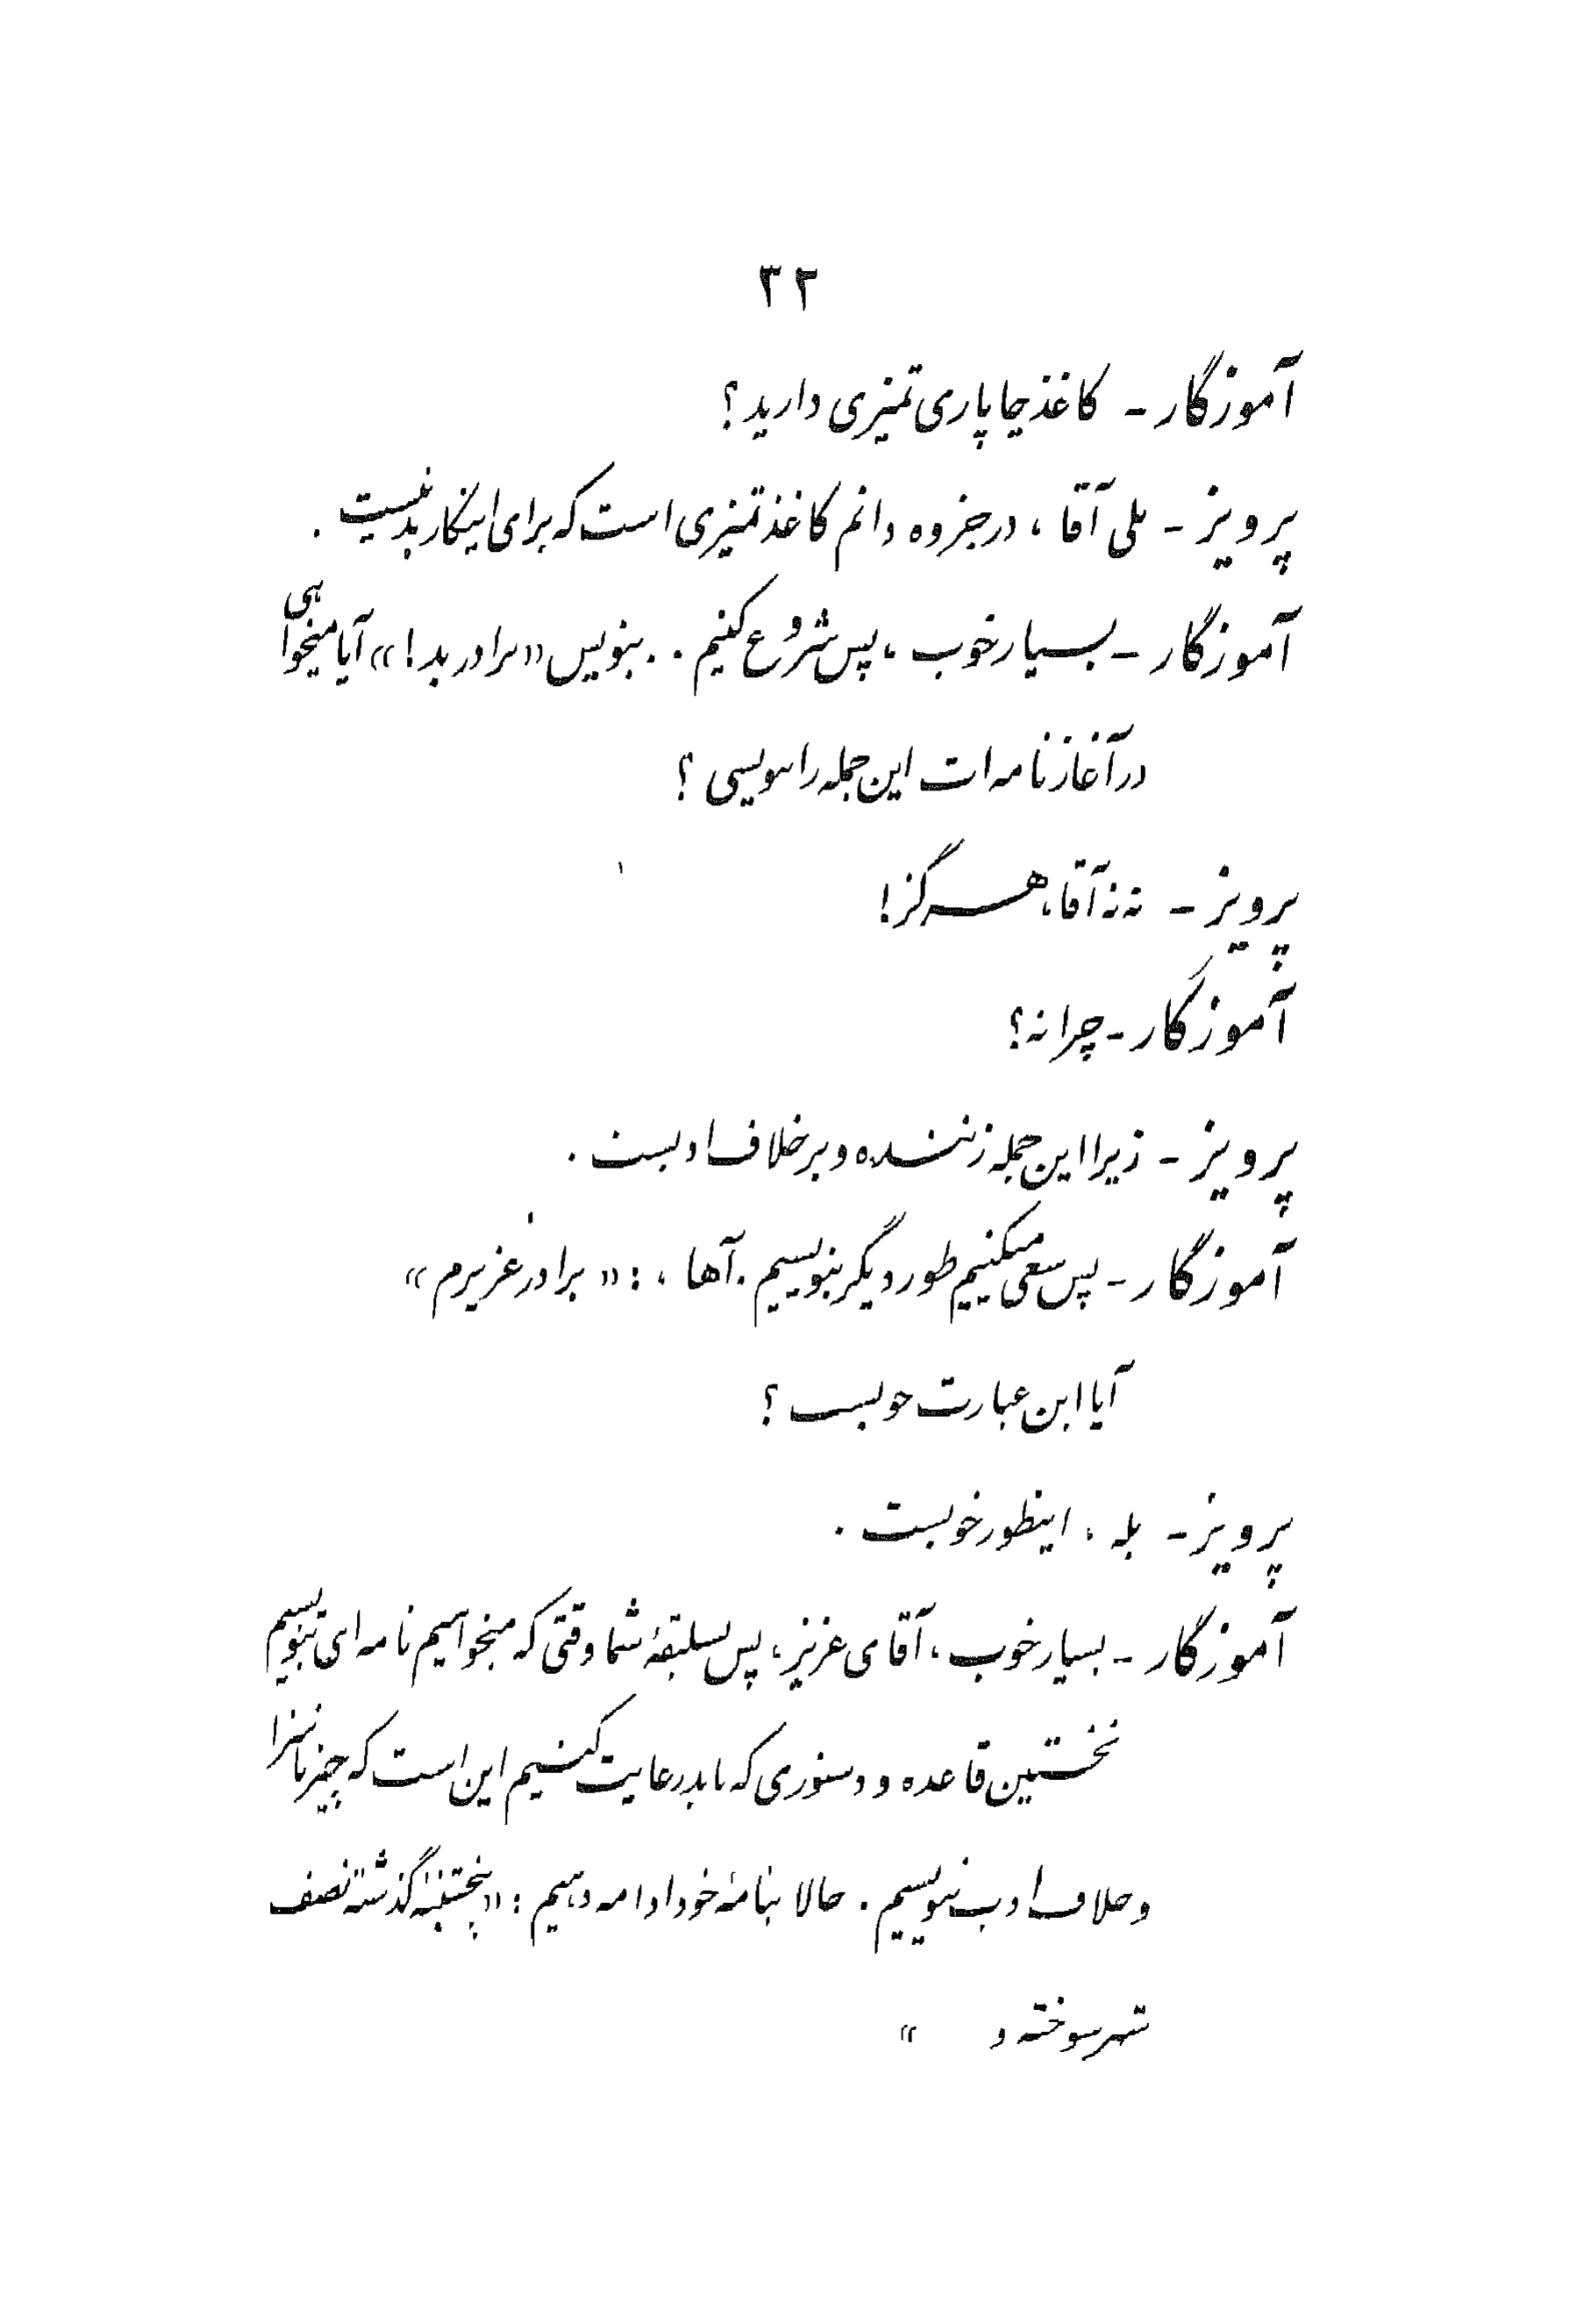 ۳۲
آموزگار ـ کاغذ چاپاری تمیزی دارید؟
پرویز ـ بلی آقا، در جزوه دانم کاغذ تمیزی است که برای اینکار بد نیست.
آموزگار ـ بسیار خوب، پس شروع کنیم .. بنویس «برادر بد!» آیا میخواهی
در آغاز نامه ات این جمله را بنویسی؟
پرویز ـ نه نه آقا، هرگز!
آموزگار ـ چرا نه؟
پرویز ـ زیرا این جمله زننده و بر خلاف ادبست.
آموزگار ـ پس سعی میکنیم طور دیگر بنویسیم. آها، : «برادر عزیزم»
آیا این عبارت خوبست؟
پرویز ـ بله، اینطور خوبست.
آموزگار ـ بسیار خوب، آقای عزیز، پس بسلیقهٔ شما وقتی که میخواهیم نامه ای بنویسیم
نخستین قاعده و دستوری که باید رعایت کنیم این است که چیز ناسزا
و خلاف ادب ننویسیم. حالا بنامهٔ خود ادامه دهیم: «پنجشنبهٔ گذشته نصف
شهر سوخته و »